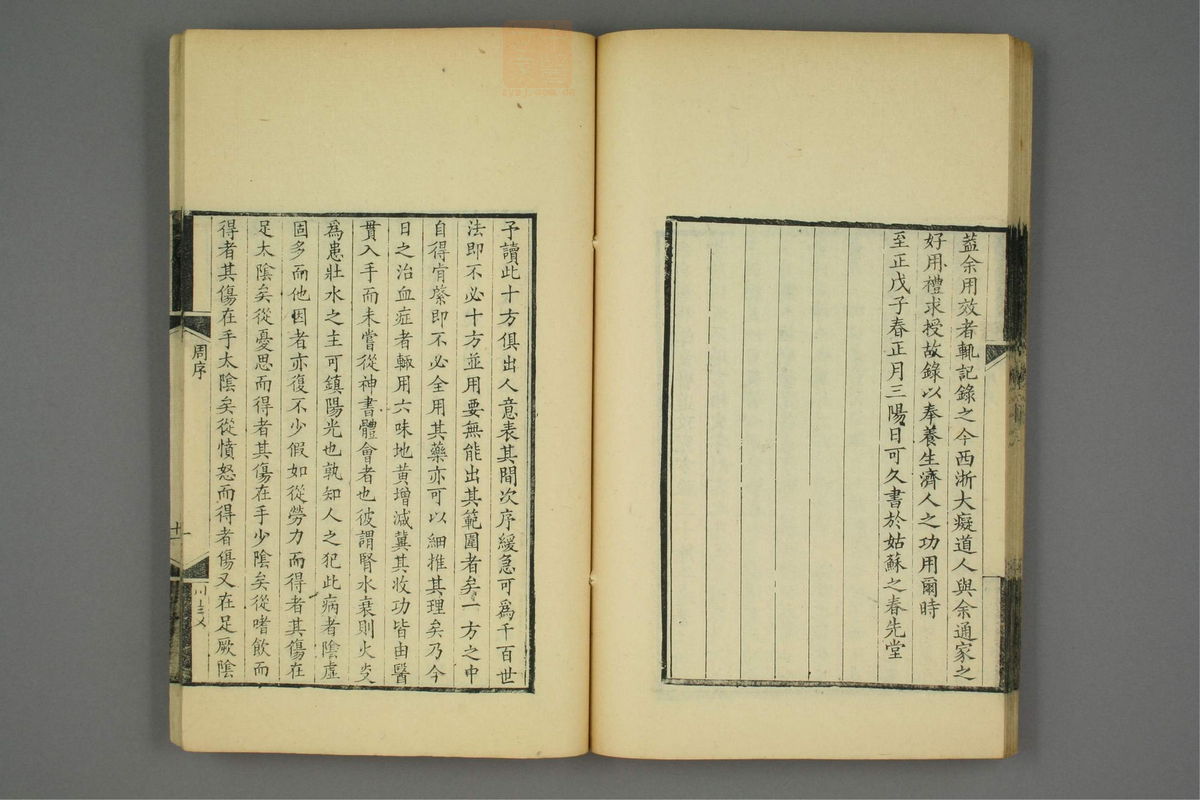 葢余用效者輒記錄之今西浙大癡道人與余通家之
好用禮求授故錄以奉養生濟人之功用爾時
至正戊子春正月三陽日可久書於姑蘇之春先堂
予讀此十方俱出人意表其間次序緩急可爲千百世
法即不必十方並用要無能出其範圍者矣一方之中
自得肯綮即不必全用其藥亦可以細推其理矣乃今
日之治血症者輒用六味地黃增減冀其收功皆由醫
貫入手而未嘗從神書體會者也彼謂腎水衰則火炎
爲患壯水之主可鎮陽光也孰知人之犯此病者陰虛
固多而他因者亦復不少假如從勞力而得者其傷在
足太陰矣從憂思而得者其傷在手少陰矣從嗜飲而
得者其傷在手太陰矣從憤怒而得者傷又在足厥陰
周序
十一